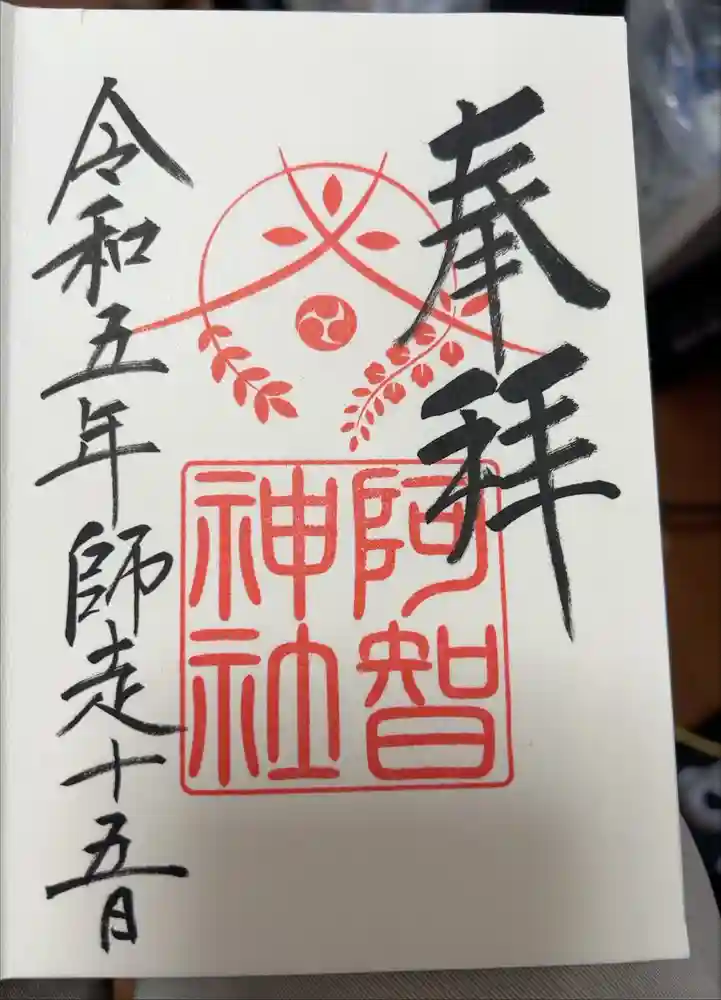 奉拝
阿智
神社
令和五年師走十五日